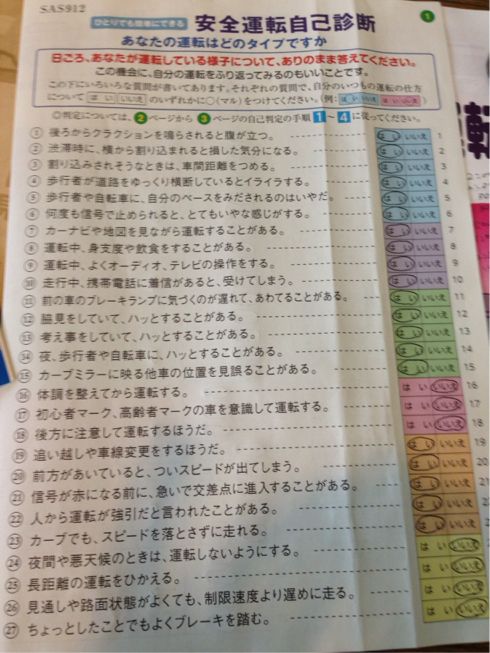 SAS912
ひとりでも簡単にできる 安全運転自己診断 1
あなたの運転はどのタイプですか
日ごろ、あなたが運転している様子について、ありのまま答えてください。
この機会に、自分の運転をふり返ってみるのもいいことです。
この下にいろいろな質問が書いてあります。それぞれの質問で、自分のいつもの運転の仕方
について はい いいえ のいずれかに○(マル)をつけてください。(例: はい いいえ はい いいえ )
◎判定については、2ページから3ページの自己判定の手順1〜4に従ってください。
① 後ろからクラクションを鳴らされると腹が立つ。 はい いいえ 1
② 渋滞時に、横から割り込まれると損した気分になる。 はい いいえ 2
③ 割り込みされそうなときは、車間距離をつめる。 はい いいえ 3
④ 歩行者が道路をゆっくり横断しているとイライラする。 はい いいえ 4
⑤ 歩行者や自転車に、自分のペースをみだされるのはいやだ。 はい いいえ 5
⑥ 何度も信号で止められると、とてもいやな感じがする。 はい いいえ 6
⑦ カーナビや地図を見ながら運転することがある。 はい いいえ 7
⑧ 運転中、身支度や飲食をすることがある。 はい いいえ 8
⑨ 運転中、よくオーディオ、テレビの操作をする。 はい いいえ 9
⑩ 走行中、携帯電話に着信があると、受けてしまう。 はい いいえ 10
⑪ 前の車のブレーキランプに気づくのが遅れて、あわてることがある。 はい いいえ 11
⑫ 脇見をしていて、ハッとすることがある。 はい いいえ 12
⑬ 考え事をしていて、ハッとすることがある。 はい いいえ 13
⑭ 夜、歩行者や自転車に、ハッとすることがある。 はい いいえ 14
⑮ カーブミラーに映る他車の位置を見誤ることがある。 はい いいえ 15
⑯ 体調を整えてから運転する。 はい いいえ 16
⑰ 初心者マーク、高齢者マークの車を意識して運転する。 はい いいえ 17
⑱ 後方に注意して運転するほうだ。 はい いいえ 18
⑲ 追い越しや車線変更をするほうだ。 はい いいえ 19
⑳ 前方があいていると、ついスピードが出てしまう。 はい いいえ 20
㉑ 信号が赤になる前に、急いで交差点に進入することがある。 はい いいえ 21
㉒ 人から運転が強引だと言われたことがある。 はい いいえ
㉓ カーブでも、スピードを落とさずに走れる。 はい いいえ
㉔ 夜間や悪天候のときは、運転しないようにする。 はい いいえ
㉕ 長距離の運転をひかえる。 はい いいえ
㉖ 見通しや路面状態がよくても、制限速度より遅めに走る。 はい いいえ
㉗ ちょっとしたことでもよくブレーキを踏む。 はい いいえ